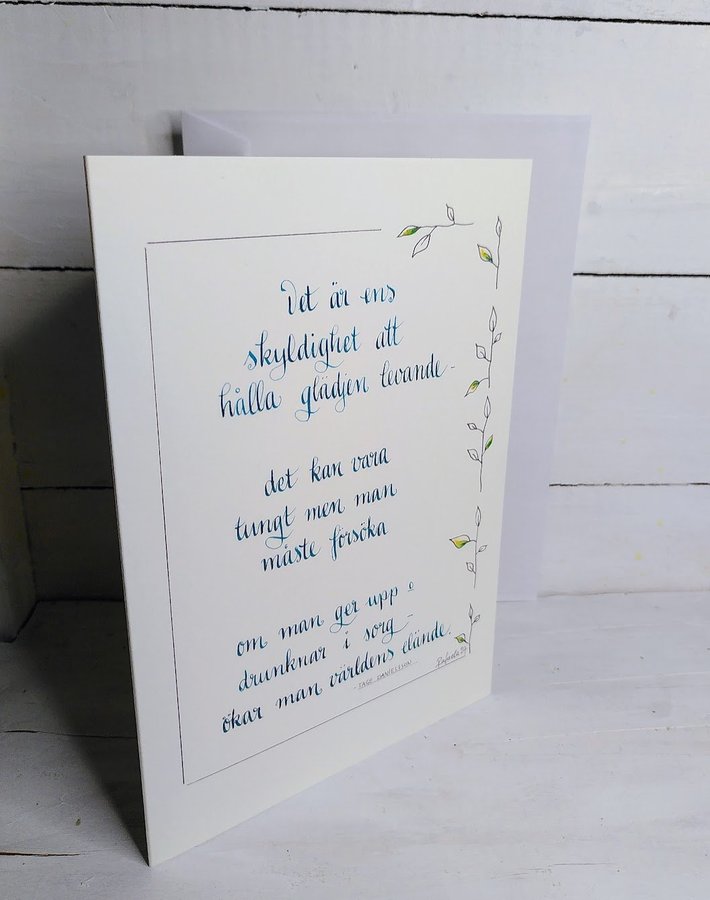 Det är ens
skyldighet att
hålla glädjen levande -
det kan vara
tungt men man
måste försöka
om man ger upp o
drunknar i sorg -
ökar man världens elände.
- TAGE DANIELSSON -